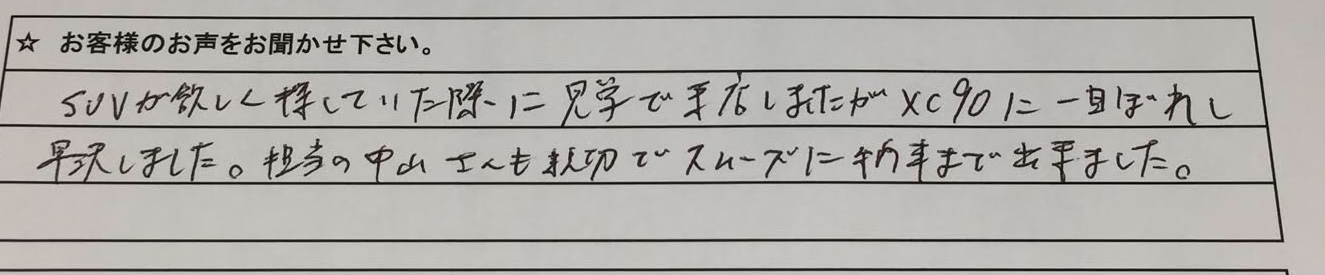 ☆ お客様のお声をお聞かせ下さい。
SUVが欲しく探していた際に見学で来店しましたがXC90に一目ぼれし
早決しました。担当の中山さんも親切でスムーズに納車まで出来ました。